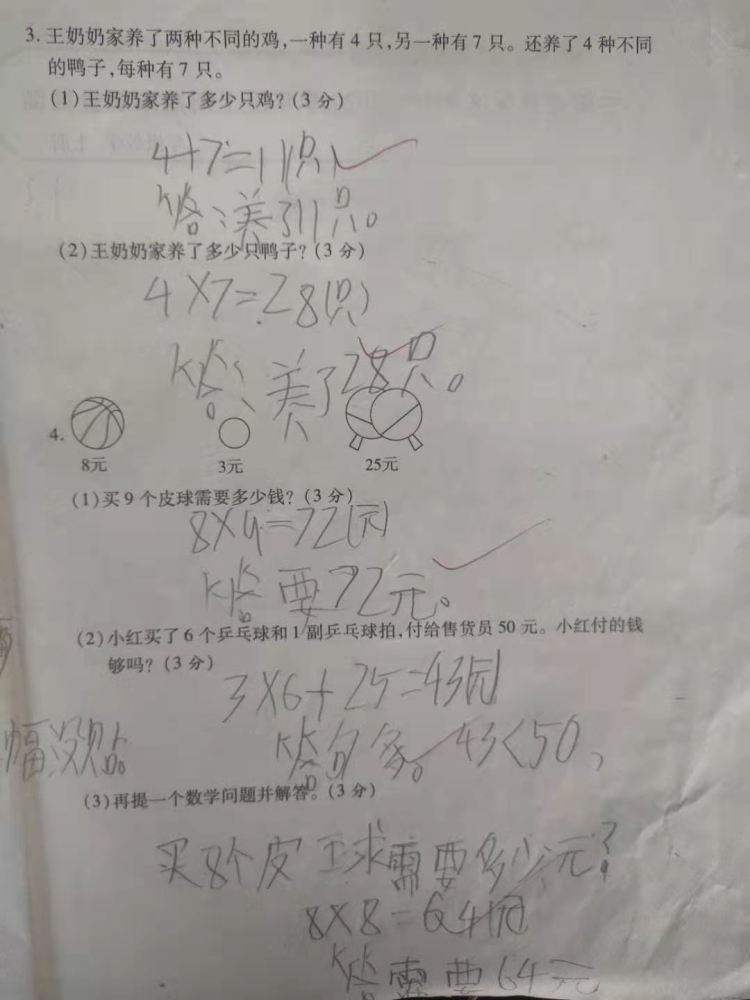 3. 王奶奶家养了两种不同的鸡,一种有4只,另一种有7只。还养了4种不同
的鸭子,每种有7只。
(1)王奶奶家养了多少只鸡?(3分)
4+7=11(只)
答:养了11只。
(2)王奶奶家养了多少只鸭子?(3分)
4×7=28(只)
答:养了28只。
4.
8元 3元 25元
(1)买9个皮球需要多少钱?(3分)
8×9=72(元)
答要72元。
(2)小红买了6个乒乓球和1副乒乓球拍,付给售货员50元。小红付的钱
够吗?(3分)
3×6+25=43(元)
答:够。43<50、
幅没贴
(3)再提一个数学问题并解答。(3分)
买8个皮球需要多少元?
8×8=64(元)
答需要64元